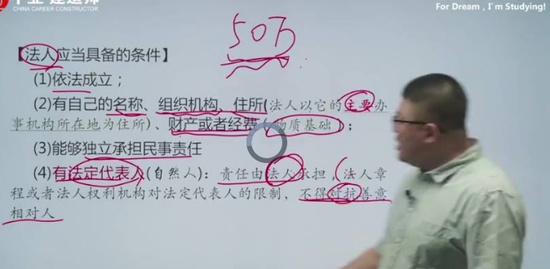 CHINA CAREER CONSTRUCTOR
For Dream, I'm Studying!
50万
【法人应当具备的条件】
(1)依法成立；
(2)有自己的名称、组织机构、住所(法人以它的主要办
事机构所在地为住所)、财产或者经费(物质基础)；
(3)能够独立承担民事责任
(4)有法定代表人(自然人)：责任由法人承担，法人章
程或者法人权利机构对法定代表人的限制，不得对抗善意
相对人